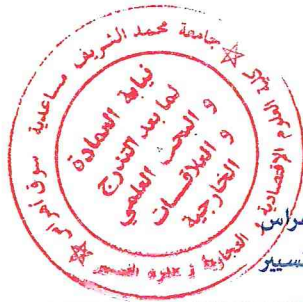 جامعة محمد الشريف مساعدية سوق أهراس
كلية العلوم الاقتصادية و التجارية و علوم التسيير
نيابة العمادة
لما بعد التدرج
و البحث العلمي
و العلاقات
الخارجية
هراس
تسيير